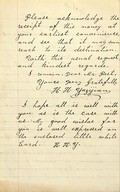 Please acknowledge the
receipt of this money at
your earliest convenience
and see that it may
reach to its destination.
With the usual regret
and kindest regards.
I remain dear Mr. Peet,
Yours very gratefully
H. H.
I hope all is well with
you as is the case with
us. My good wishes for
you is well expressed on
the enclosed little white
Card. H. H. Y.